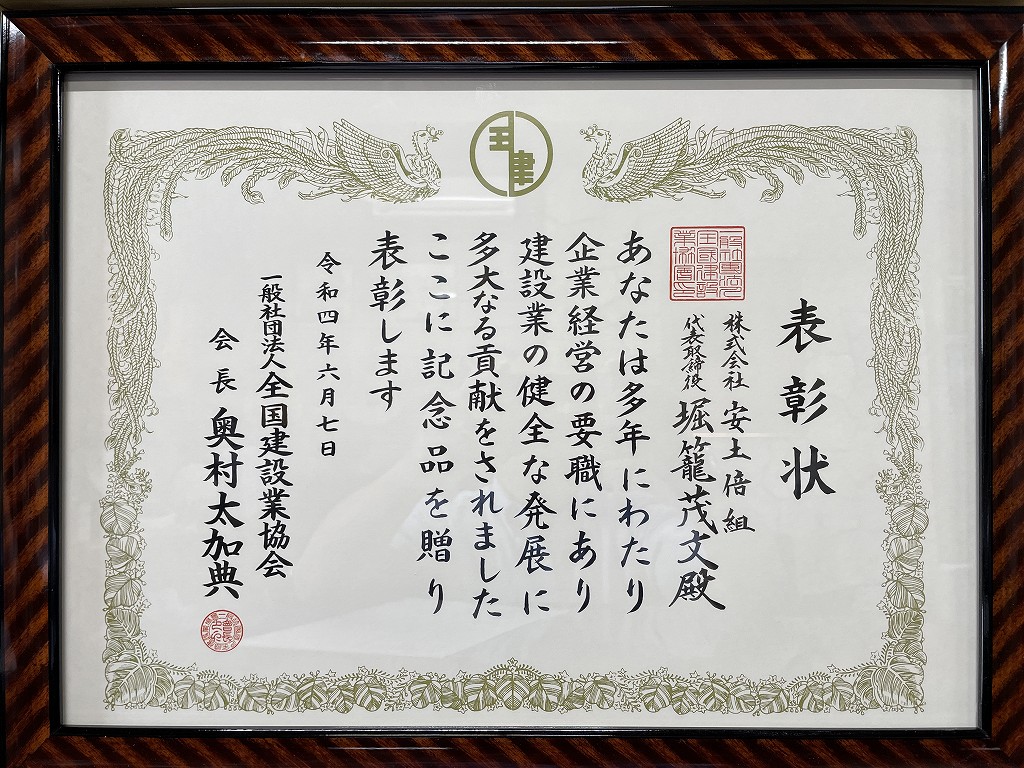 表彰状
株式会社 安土倍組
代表取締役 堀籠茂文殿
あなたは多年にわたり
企業経営の要職にあり
建設業の健全な発展に
多大なる貢献をされました
ここに記念品を贈り
表彰します
令和四年六月七日
一般社団法人全国建設業協会
会長 奥村太加典